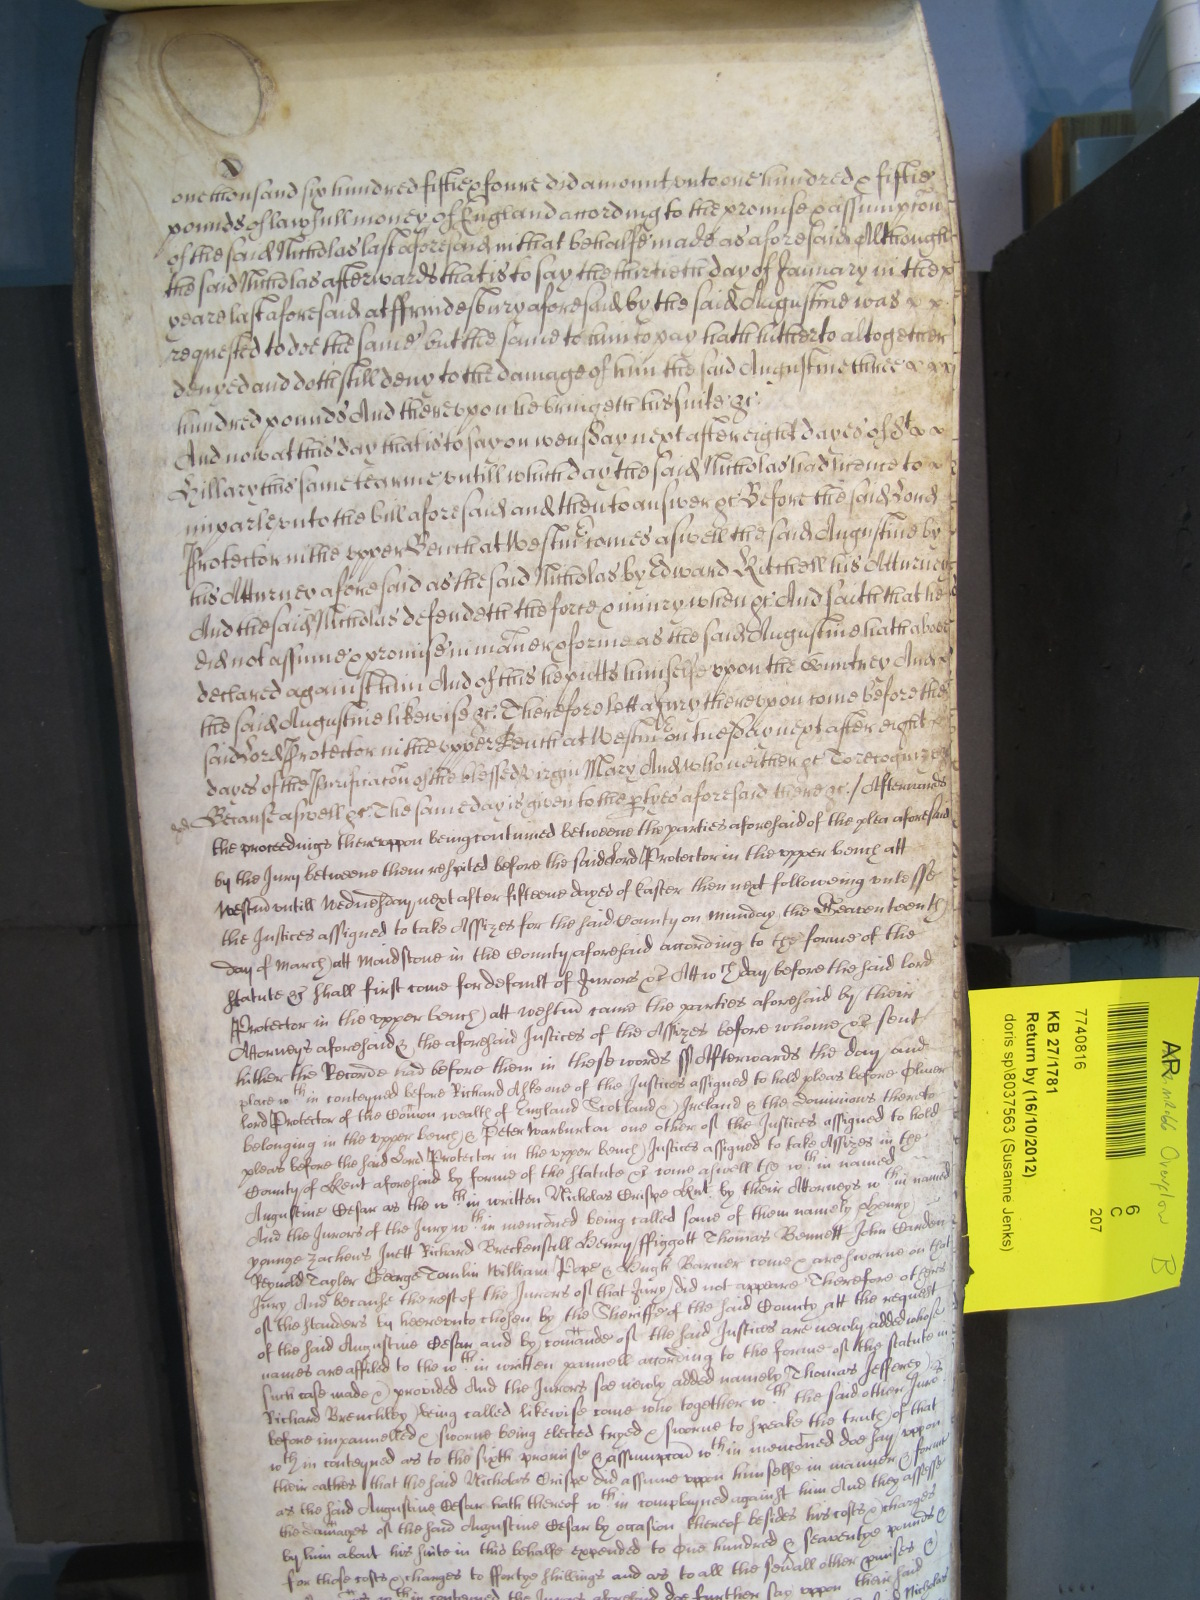 one thousand six hundred fiftie & foure did amount unto one hundred & fiftie
pounds of lawfull money of England according to the promise & assumpcon
of the said Nicholas last aforesaid in that behalfe made as aforesaid Although
the said Nicholas afterwards that is to say the thirtieth day of January in the x
yeare last aforesaid att ffrindesbury aforesaid by the said Augustine was x x
requested to doe the same but the same to him to pay hath hitherto altogether
denyed and doth still deny to the damage of him the said Augustine three x x x
hundred pounds And thereupon he bringeth his suite &c.
And now at this day that is to say on wensday next after eight dayes of St x x
Hillary this same tearme untill which day the said Nicholas had licence to x
imparle unto the bill aforesaid and then to answer &c Before the said Lord
Protector in the upper Bench at Westm comes aswell the said Augustine by
his Atturney aforesaid as the said Nicholas by Edward Ritchell his Atturney
And the said Nicholas defendeth the force & iniury when &c And saith that he
did not assume & promise in maner & forme as the said Augustine hath above
declared against him And of this he putts himselfe upon the Countrey And x
the said Augustine likewise &c. Therefore lett a Jury thereupon come before the
said Lord Protector in the upper Bench at Westm on tuesday next after eight x
dayes of the Purificacon of the blessed virgin Mary And who neither &c To recognize
Because aswell &c. The same day is given to the ptyes aforesaid there &c. / Afterwards
the proceedings thereuppon being continued betweene the parties aforesaid of the plea aforesaid
by the Jury betweene them respited before the said Lord Protector in the upper bench att
Westm untill Wednesday next after fifteene dayes of Easter then next following unlesse
the Justices assigned to take Assizes for the said County on Munday the Seaventeenth
day of March att Maidstone in the County aforesaid according to the forme of the
statute &c shall first come for default of Jurors &c Att wch day before the said lord
Protector in the upper bench att westm came the parties aforesaid by their
Attorneys aforesaid & the aforesaid Justices of the Assizes before whome &c sent
hither the Recorde had before them in these words ss Afterwards the day and
place wth in conteyned before Richard Aske one of the Justices assigned to hold pleas before Oliver
lord Protector of the Comon wealth of England Scotland & Ireland & the dominions thereto
belonging in the upper bench & Peter Warburton one other of the Justices assigned to hold
pleas before the said Lord Protector in the upper bench Justices assigned to take Assizes in the
County of Kent aforesaid by forme of the statute &c come aswell the wth in named
Augustine Cesar as the wth in written Nicholas Crispe by their Attorneys wth in named
And the Jurors of the Jury wth in menconed being called some of them namely Henry
younge Zacheus Richard Breckenstill Henry ffiggott Thomas Bennett John Carden
Reynold Tayler George Tomlin William Pope & Hugh Barner come & are sworne on that
Jury And because the rest of the Jurors of that Jury did not appeare Therefore others
of the standers by hereunto chosen by the Sheriffe of the said County att the request
of the said Augustine Cesar and by comande of the said Justices are newly added whose
names are affiled to the wth in written pannell according to the forme of the statute in
such case made & provided And the Jurors soe newly added namely Thomas Jefferey &
Richard Brenchley being called likewise come who together wth the said other Juro
before impannelled & sworne being elected tryed & sworne to speake the truth of that
wth in conteyned as to the sixth promise & assumpcon wth in menconed doe say uppon
their oathes that the said Nicholas Crispe did assume uppon himselfe in manner & forme
as the said Augustine Cesar hath thereof wth in complayned against him And they assesse
the damages of the said Augustine Cesar by occasion thereof besides his costs & charges
by him about his suite in this behalfe expended to One hundred & seaventye pounds &
for those costs & charges to ffortye shillings and as to all the severall other pmises &
wth in conteyned the Jurors aforesaid doe further say uppon their said
Nicholas
AR
B
6
C
207
7740816
KB 27/1781
Return by (16/10/2012)
doris sp\8037563 (Susanne Jenks)